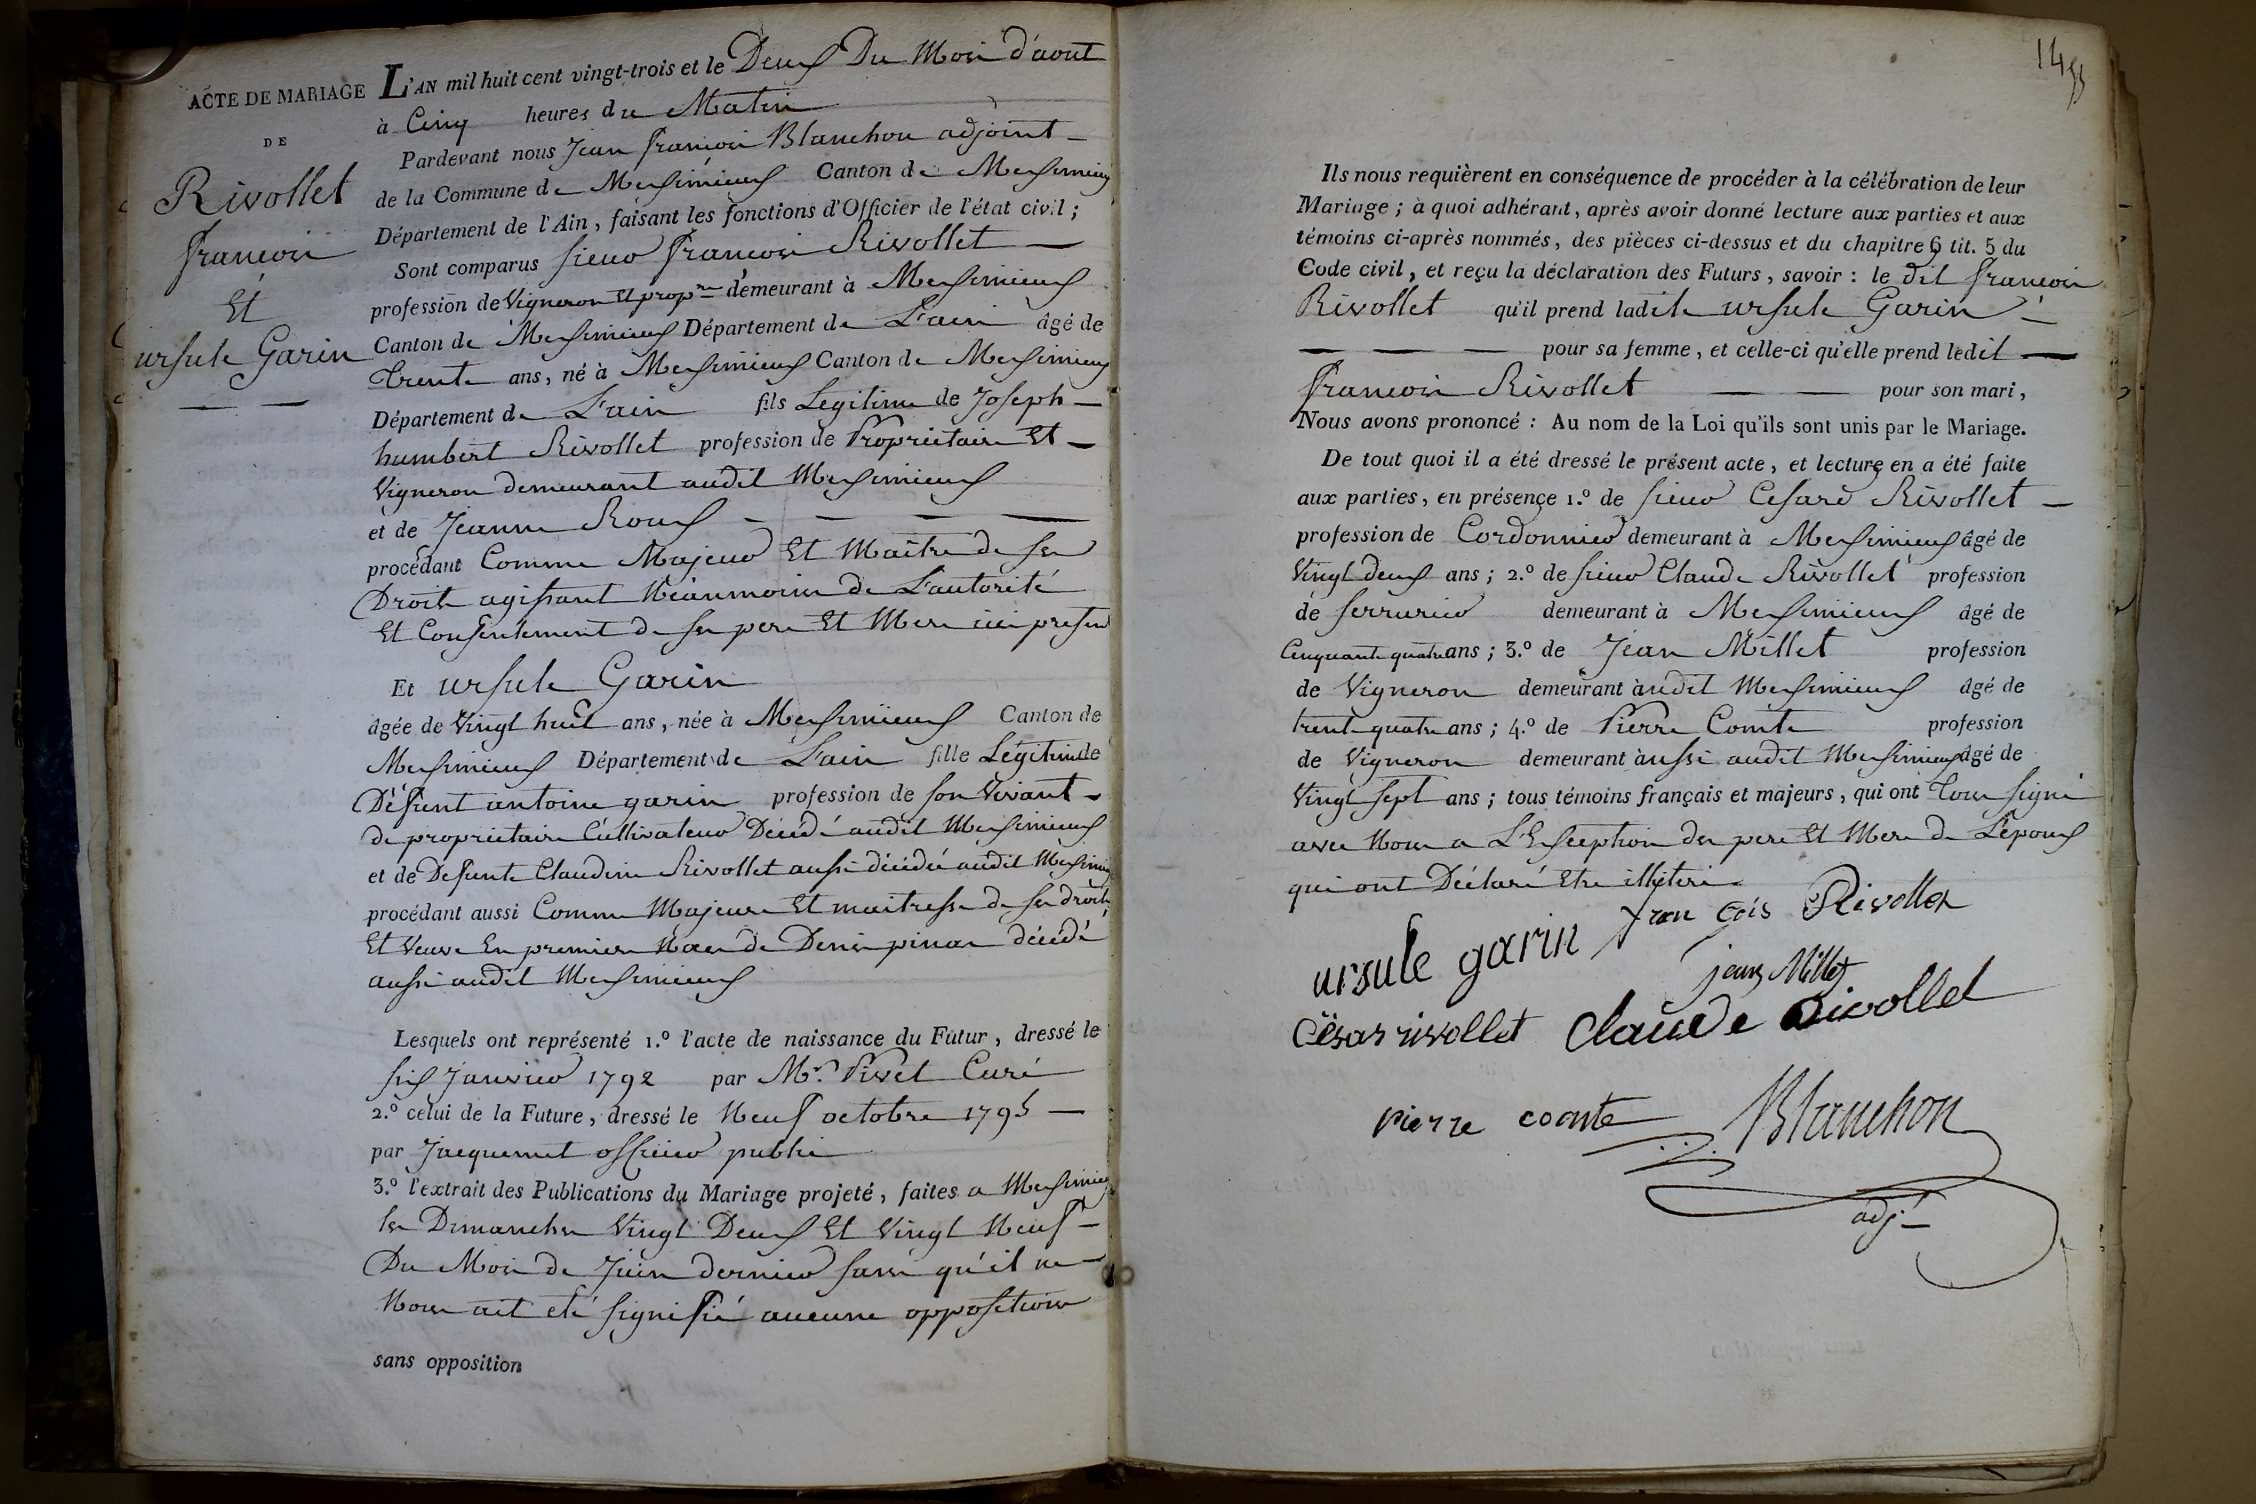 ACTE DE MARIAGE
DE
Rivollet
francois
Et
ursule Garin
L'AN mil huit cent vingt-trois et le Deux Du Mois d'aout
à Cinq heures du Matin
Pardevant nous Jean francois Blanchon adjoint
de la Commune de Meximieux Canton de Meximieux
Département de l'Ain, faisant les fonctions d'Officier de l'état civil;
Sont comparus sieur francois Rivollet
profession de Vigneron Et propre demeurant à Meximieux
Canton de Meximieux Département de L'ain âgé de
Trente ans, né à Meximieux Canton de Meximieux
Département de L'ain fils Legitime de Joseph
humbert Rivollet profession de Proprietaire Et
Vigneron demeurant audit Meximieux
et de Jeanne Roux
procédant Comme Majeur Et Maitre de ses
Droits agissant Néanmoins de L'autorité
Et Consentement de ses pere Et Mere ici presens
Et ursule Garin
âgée de Vingt huit ans, née à Meximieux Canton de
Meximieux Département de L'ain fille Légitime de
Défunt antoine garin profession de son Vivant
de proprietaire Cultivateur Décédé audit Meximieux
et de Defunte Claudine Rivollet aussi décédée audit Meximieux
procédant aussi Comme Majeure Et maitresse de ses droits
Et Veuve En premiere Noces de Denis pinar décédé
aussi audit Meximieux
Lesquels ont représenté 1.º l'acte de naissance du Futur, dressé le
six Janvier 1792 par Mr. Pivet Curé
2.º celui de la Future, dressé le Neuf octobre 1795
par Jacquemet officier public
3.º l'extrait des Publications du Mariage projeté, faites a Meximieux
les Dimanches Vingt Deux Et Vingt Neuf
Du Mois de Juin dernier sans qu'il ne
Nous ait été signifié aucune opposition
sans opposition
14
Ils nous requièrent en conséquence de procéder à la célébration de leur
Mariage; à quoi adhérant, après avoir donné lecture aux parties et aux
témoins ci-après nommés, des pièces ci-dessus et du chapitre 6 tit. 5 du
Code civil, et reçu la déclaration des Futurs, savoir: le dit francois
Rivollet qu'il prend ladite ursule Garin
pour sa femme, et celle-ci qu'elle prend ledit
francois Rivollet pour son mari,
Nous avons prononcé: Au nom de la Loi qu'ils sont unis par le Mariage.
De tout quoi il a été dressé le présent acte, et lecture en a été faite
aux parties, en présence 1.º de sieur Cesard Rivollet
profession de Cordonnier demeurant à Meximieux âgé de
Vingt deux ans; 2.º de sieur Claude Rivollet profession
de serrurier demeurant à Meximieux âgé de
Cinquante quatre ans; 3.º de Jean Millet profession
de Vigneron demeurant audit Meximieux âgé de
trente quatre ans; 4.º de Pierre Comte profession
de Vigneron demeurant aussi audit Meximieux âgé de
Vingt sept ans; tous témoins français et majeurs, qui ont Tous signé
avec Nous a L'Exception des pere Et Mere de L'époux
qui ont Déclaré Etre illiteré
ursule garin fran cois Rivollet
jean Millet
César rivollet Claude Rivollet
pierre comte Blanchon
adjt